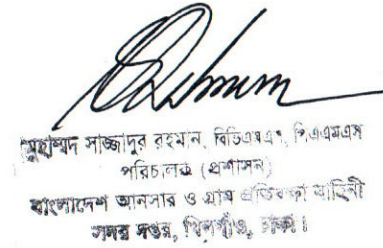 মুহাম্মদ সাজ্জাদুর রহমান, বিভিএমএস, পিএএমএস
পরিচালক (প্রশাসন)
বাংলাদেশ আনসার ও গ্রাম প্রতিরক্ষা বাহিনী
সদর দপ্তর, খিলগাঁও, ঢাকা।